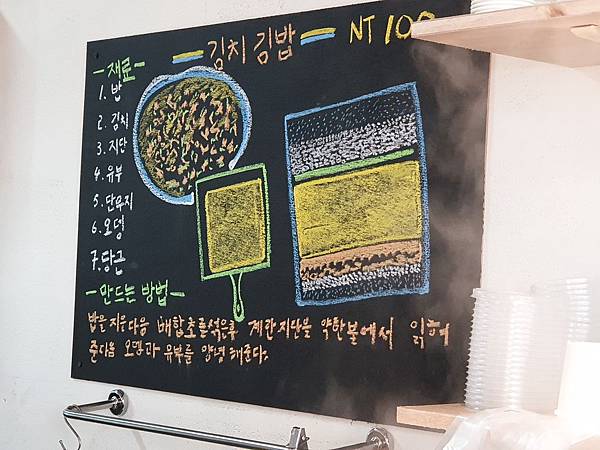 김치 김밥 NT 100
-재료-
1. 밥
2. 김치
3. 지단
4. 유부
5. 단무지
6. 오뎅
7. 당근
-만드는 방법-
밥을 지은다음 배합초를섞은후 계란지단을 약한불에서 익혀
준다음 오뎅과 유부를 양념해준다.